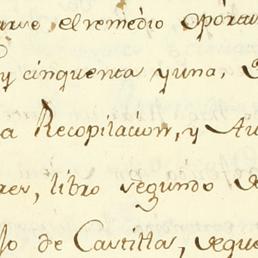 el remedio oport
y cinquenta y una,
a Recopilacion, y Au
res, libro segundo de
so de Castilla, segu